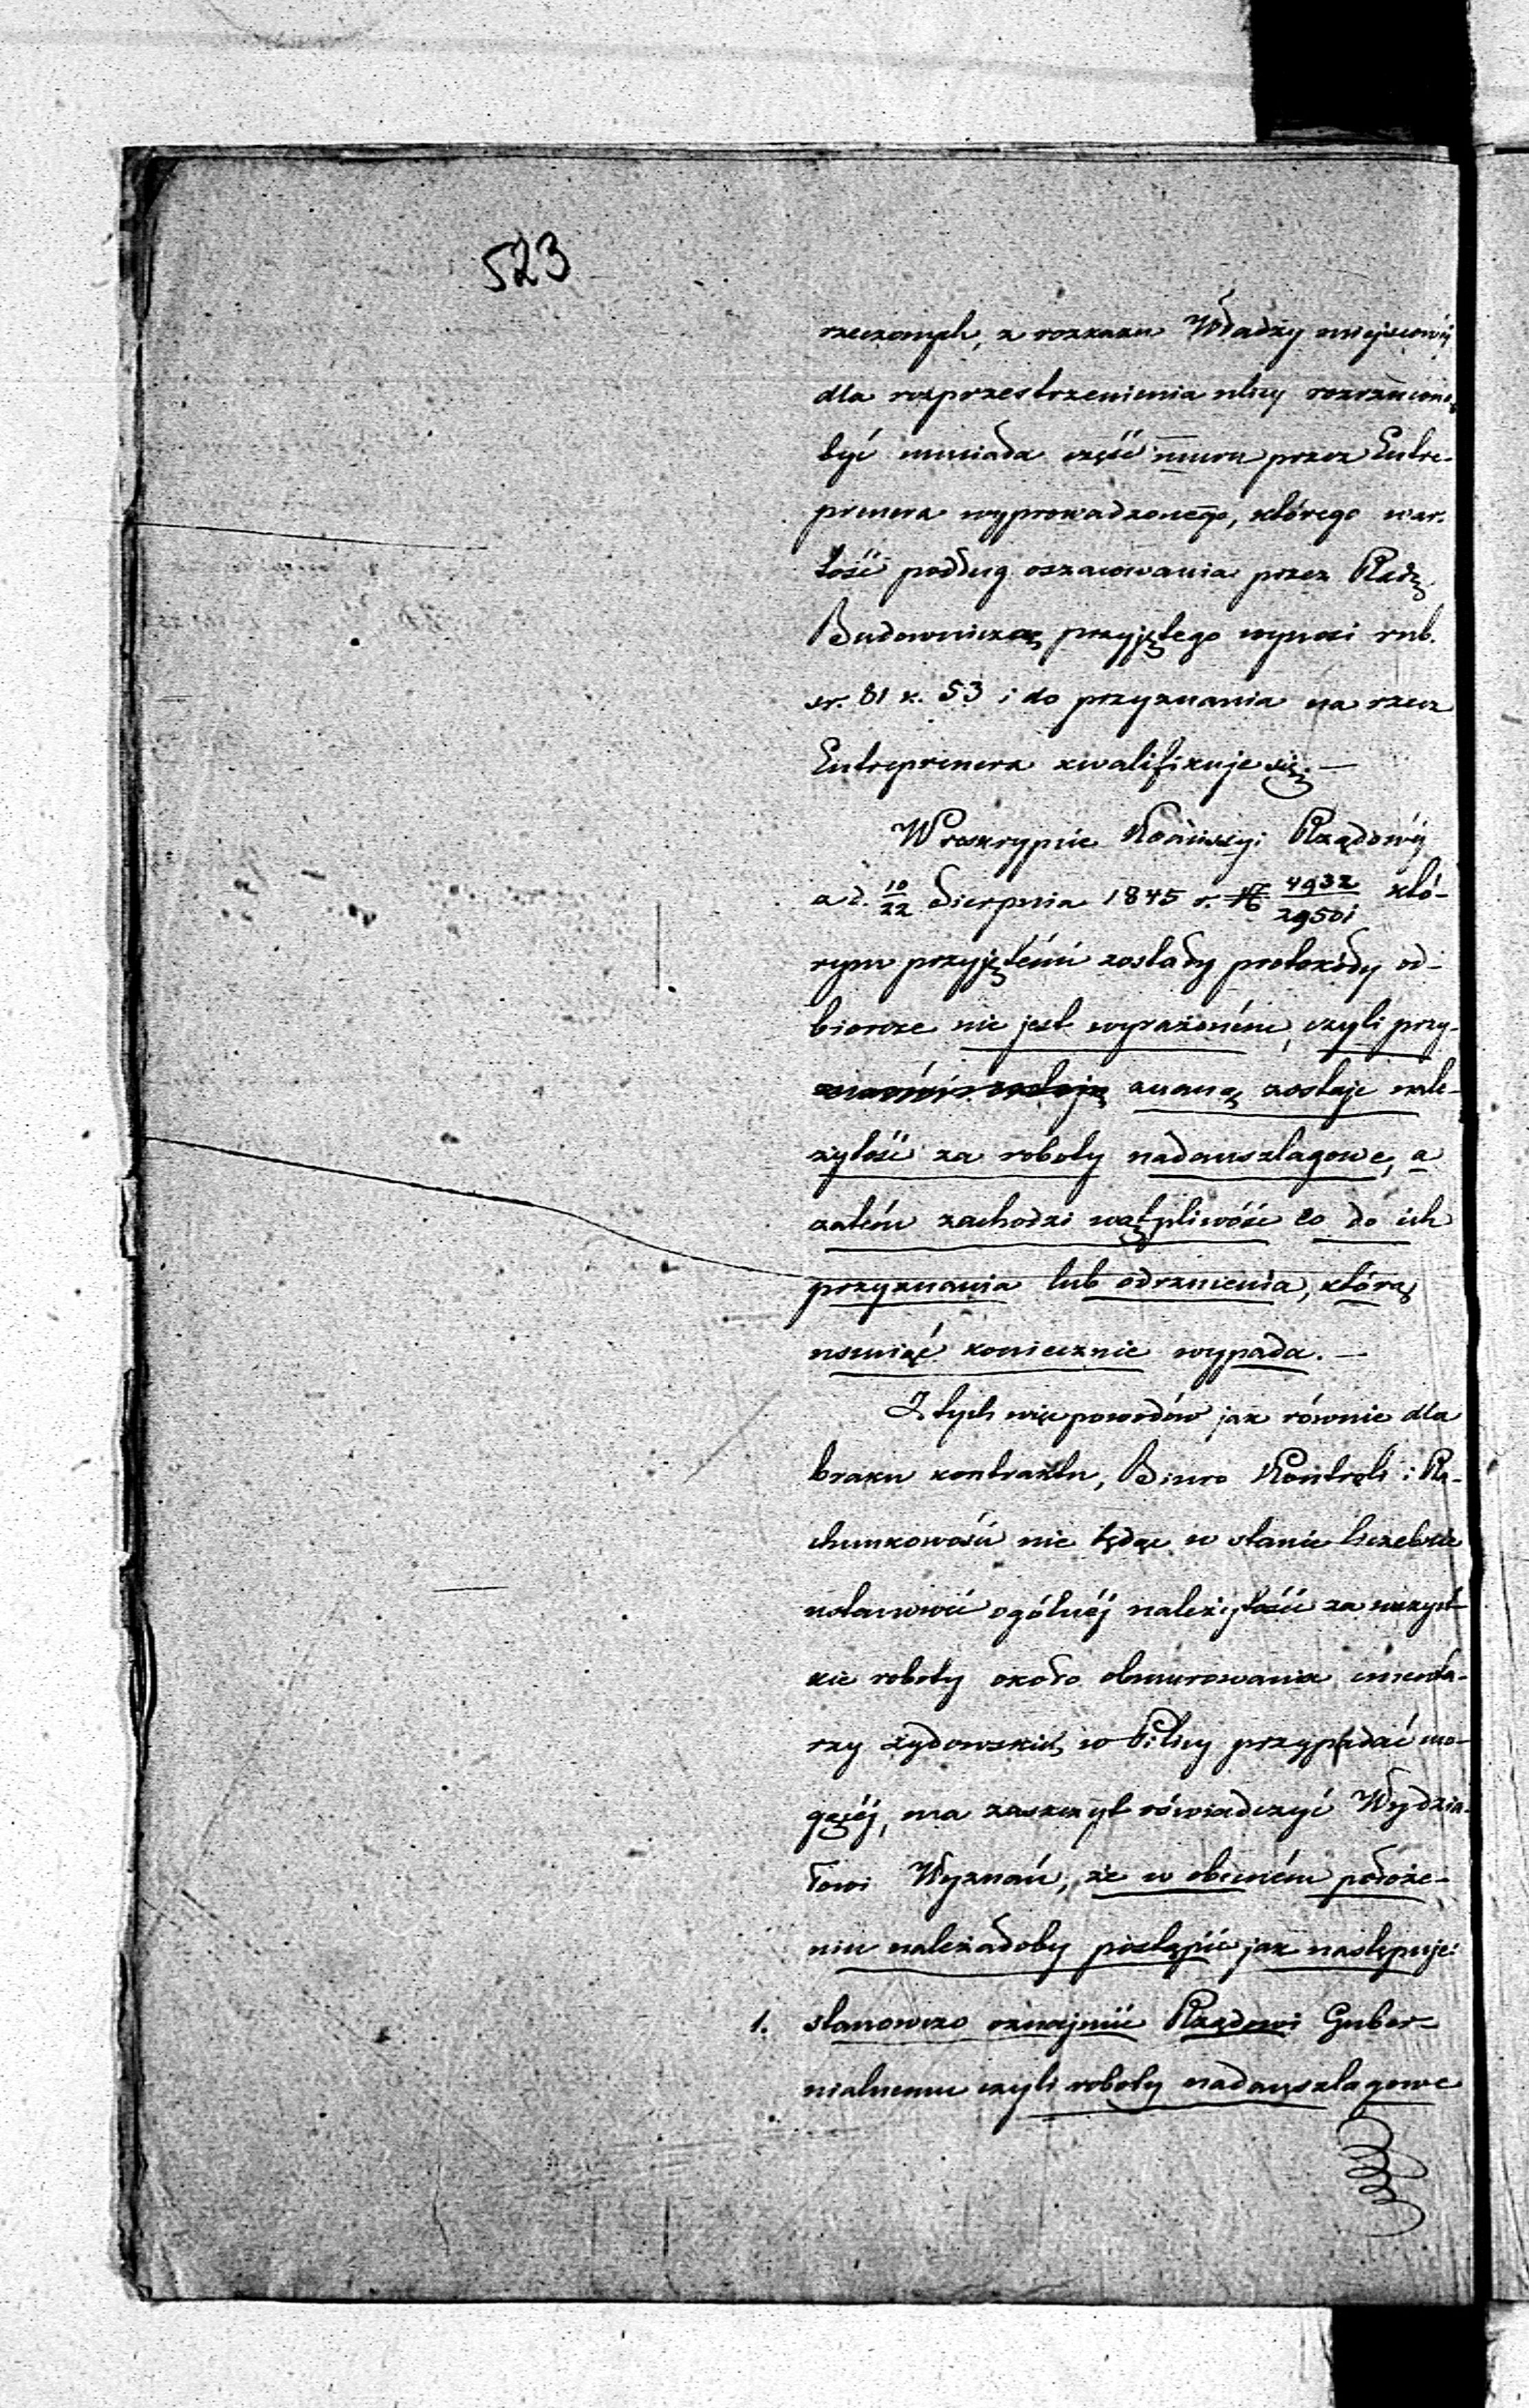 523
rzeczonych, z rozkazu Władzy miejscowéj
dla rozprzestrzenienia ulicy rozrzucone
być musiała część muru przez Entre-
prenera wyprowadzonego, którego war-
tość podług oszacowania przez Radę
Budowniczą przyjętego wynosi rub.
sr. 81 k. 53 i do przyznania na rzecz
Entreprenera kwalifikuje się. —
W reskrypcie Kommissyi Rządowéj
z d. 10/22 Sierpnia 1845 r. № 4932/29501 któ-
rym przyjętémi zostały protokóły od-
biorcze nie jest wyrażoném, czyli przy-
znaną zostaje nale-
żytość za roboty nadanszlagowe, a
zatém zachodzi wątpliwość co do ich
przyznania lub odrzucenia, którą
usunąć koniecznie wypada. —
Z tych więc powodów jak równie dla
braku kontraktu, Biuro Kontroli i Ra-
chunkowości nie będąc w stanie liczebnie
ustanowić ogólnéj należytości za wszyst-
kie roboty około obmurowania cmenta-
rzy żydowskich w Pilicy przypadać mo-
gącéj, ma zaszczyt oświadczyć Wydzia-
łowi Wyznań, że w obecném położe-
niu należałoby postąpić jak następuje:
1. stanowczo oznajmić Rządowi Guber-
nialnemu czyli roboty nadanszlagowe